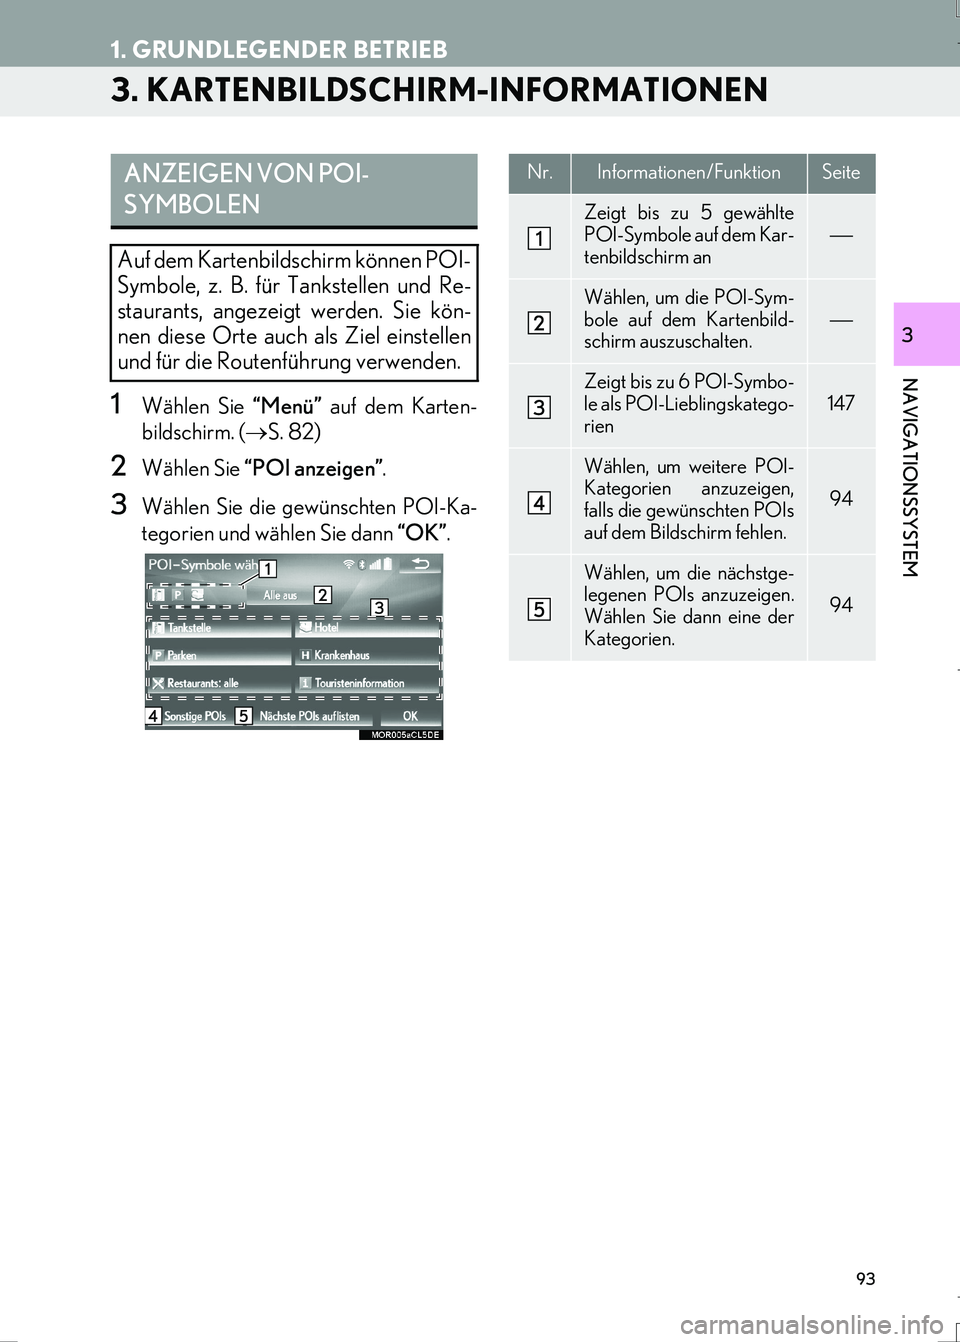 1. GRUNDLEGENDER BETRIEB
3. KARTENBILDSCHIRM-INFORMATIONEN
ANZEIGEN VON POI-
SYMBOLEN
Auf dem Kartenbildschirm können POI-
Symbole, z. B. für Tankstellen und Re-
staurants, angezeigt werden. Sie kön-
nen diese Orte auch als Ziel einstellen
und für die Routenführung verwenden.
1 Wählen Sie “Menü” auf dem Karten-
bildschirm. (→S. 82)
2 Wählen Sie “POI anzeigen”.
3 Wählen Sie die gewünschten POI-Ka-
tegorien und wählen Sie dann “OK”.
POI-Symbole wäh 1
P Alle aus 2
3
Tankstelle Hotel
P Parken H Krankenhaus
Restaurants: alle i Touristeninformation
4 Sonstige POIs 5 Nächste POIs auflisten OK
MOR005aCL5DE
Nr. Informationen/Funktion Seite
1 Zeigt bis zu 5 gewählte
POI-Symbole auf dem Kar-
tenbildschirm an
—
2 Wählen, um die POI-Sym-
bole auf dem Kartenbild-
schirm auszuschalten.
—
3 Zeigt bis zu 6 POI-Symbo-
le als POI-Lieblingskatego-
rien
147
4 Wählen, um weitere POI-
Kategorien anzuzeigen,
falls die gewünschten POIs
auf dem Bildschirm fehlen.
94
5 Wählen, um die nächstge-
legenen POIs anzuzeigen.
Wählen Sie dann eine der
Kategorien.
94
3
NAVIGATIONSSYSTEM
93
carmanualsonline.info